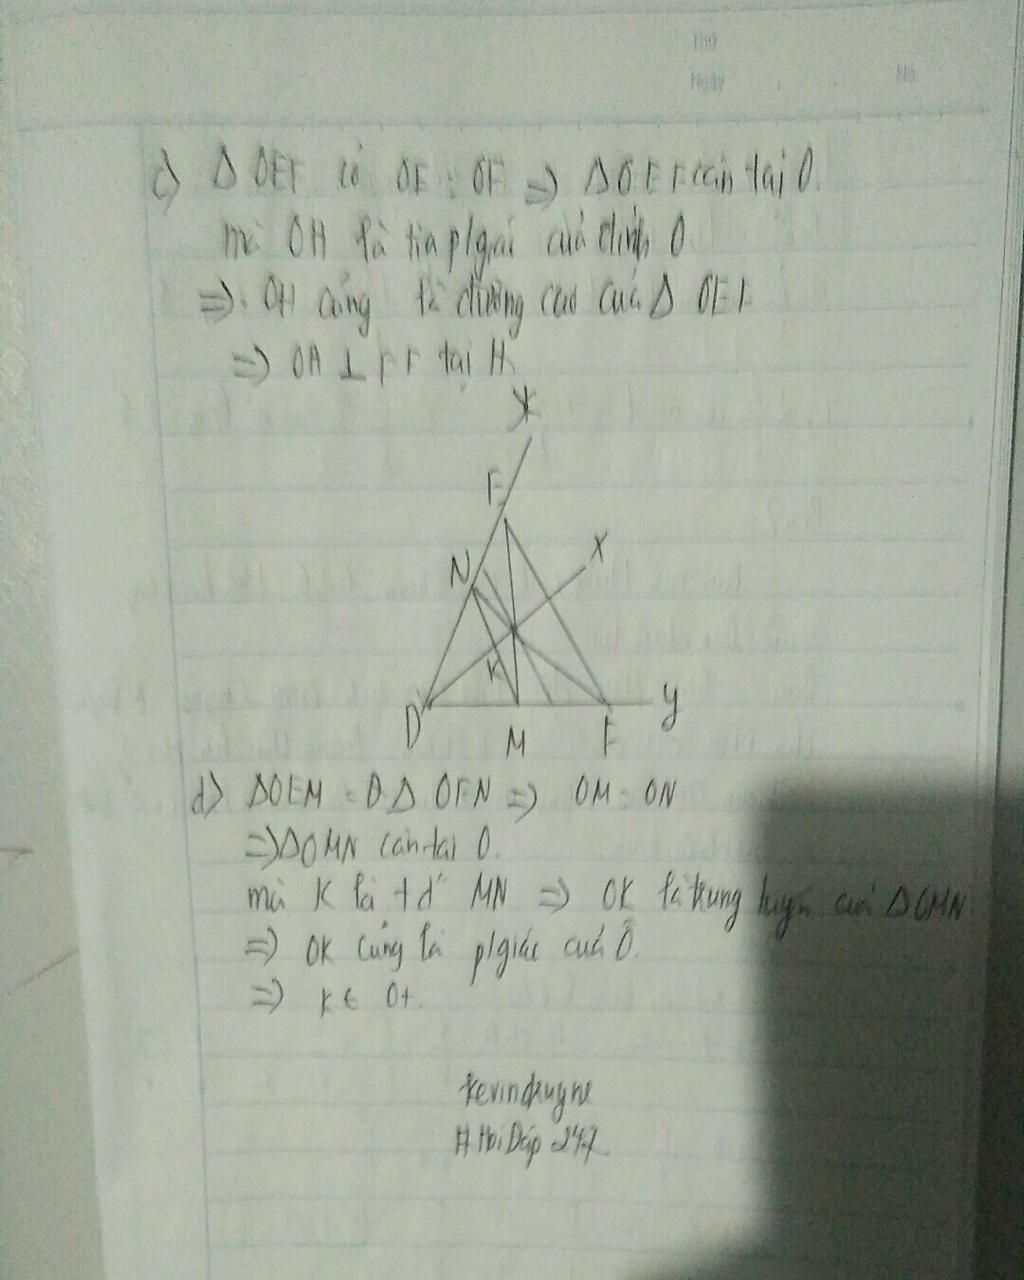 Thứ
Ngày No.
c) Δ OEF có OE = OF => Δ OEF cân tại O.
mà OH là tia p/giác của đỉnh O
=> OH cũng là đường cao của Δ OEF
=> OH ⊥ EF tại H.
X
E
N X
K
D M F y
d) ΔOEM = Δ OFN => OM = ON
=> ΔOMN cân tại O.
mà K là tđ MN => OK là trung tuyến của ΔOMN
=> OK cũng là p/giác của Ô.
=> K ∈ Ot.
kevindugne
# Hoi Dáp 247